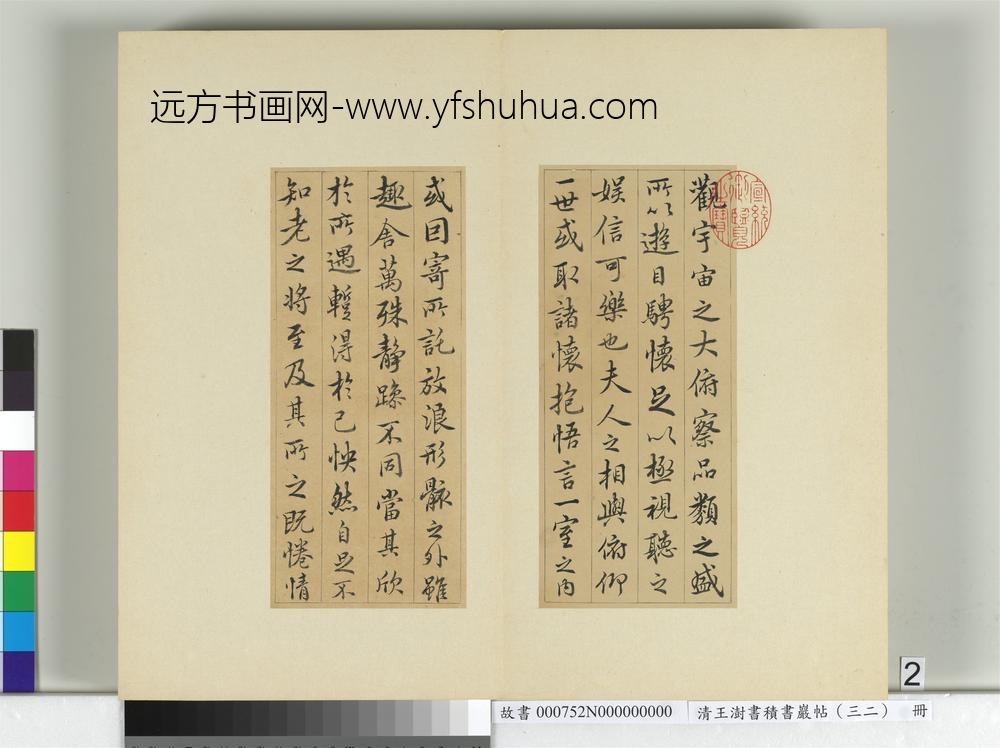 远方书画网-www.yfshuhua.com
觀宇宙之大俯察品類之盛
所以遊目騁懷足以極視聽之
娱信可樂也夫人之相與俯仰
一世或取諸懷抱悟言一室之内
或因寄所託放浪形骸之外雖
趣舍萬殊静躁不同當其欣
於所遇暫得於己怏然自足不
知老之将至及其所之既惓情
宣統御覽之寶
2
故書 000752N000000000
清王澍書積書巖帖（三二） 冊